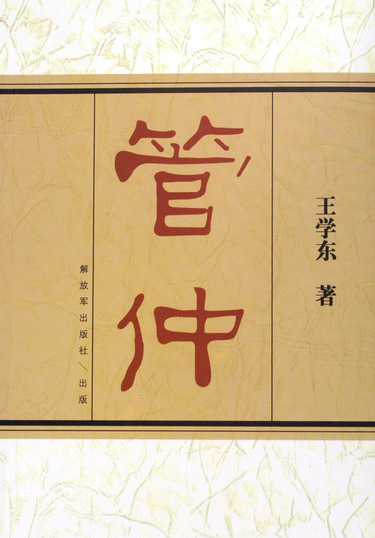 王学东 著
管仲
解放军出版社／出版